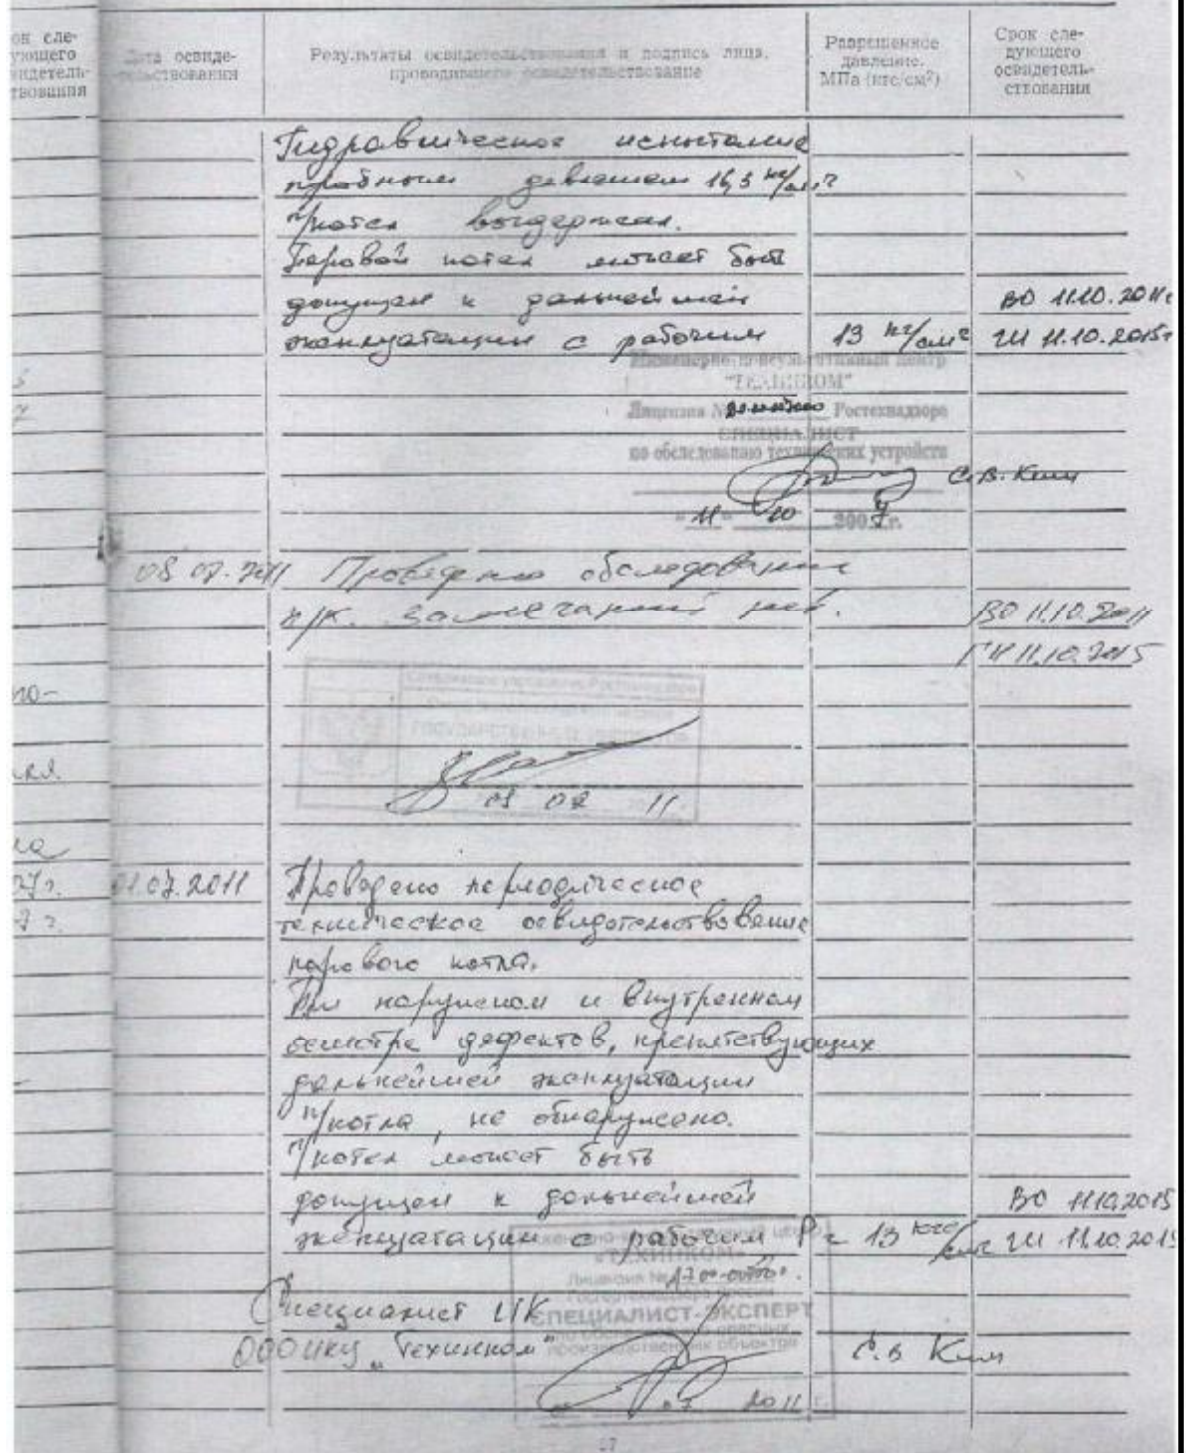 ок сле-
ующего
видетель-
твования
Дата освиде-
тельствования
Результаты освидетельствования и подпись лица,
проводившего освидетельствование
Разрешенное
давление,
МПа (кгс/см²)
Срок сле-
дующего
освидетель-
ствования
Гидравлическое испытание
пробным давлением 16,3 кг/см²
п/котел выдержал.
Паровой котел может быть
допущен к дальнейшей
ВО 11.10.2011г
эксплуатации с рабочим 13 кг/см² ГИ 11.10.2015г
Инженерно-консультативный центр
"ТЕХИНКОМ"
Лицензия № Ростехнадзора
СПЕЦИАЛИСТ
по обследованию технических устройств
С.В. Ким
"11" 10 2007 г.
08.07.2011 Проведено обследование
п/к. Замечаний нет. ВО 11.10.2011
ГИ 11.10.2015
но-
ГОСУДАРСТВЕННЫЙ ИНСПЕКТОР
08 07 11
ла
27г.
7г.
01.07.2011 Проведено периодическое
техническое освидетельствование
парового котла.
При наружном и внутреннем
осмотре дефектов, препятствующих
дальнейшей эксплуатации
п/котла, не обнаружено.
П/котел может быть
допущен к дальнейшей ВО 11.10.2015
эксплуатации с рабочим Р = 13 кгс/см² ГИ 11.10.2015
«ТЕХИНКОМ»
Лицензия №
Специалист ИК
СПЕЦИАЛИСТ-ЭКСПЕРТ
по обследованию опасных
ООО ИКЦ "Техинком" С.В Ким
производственных объектов
07 2011 г.